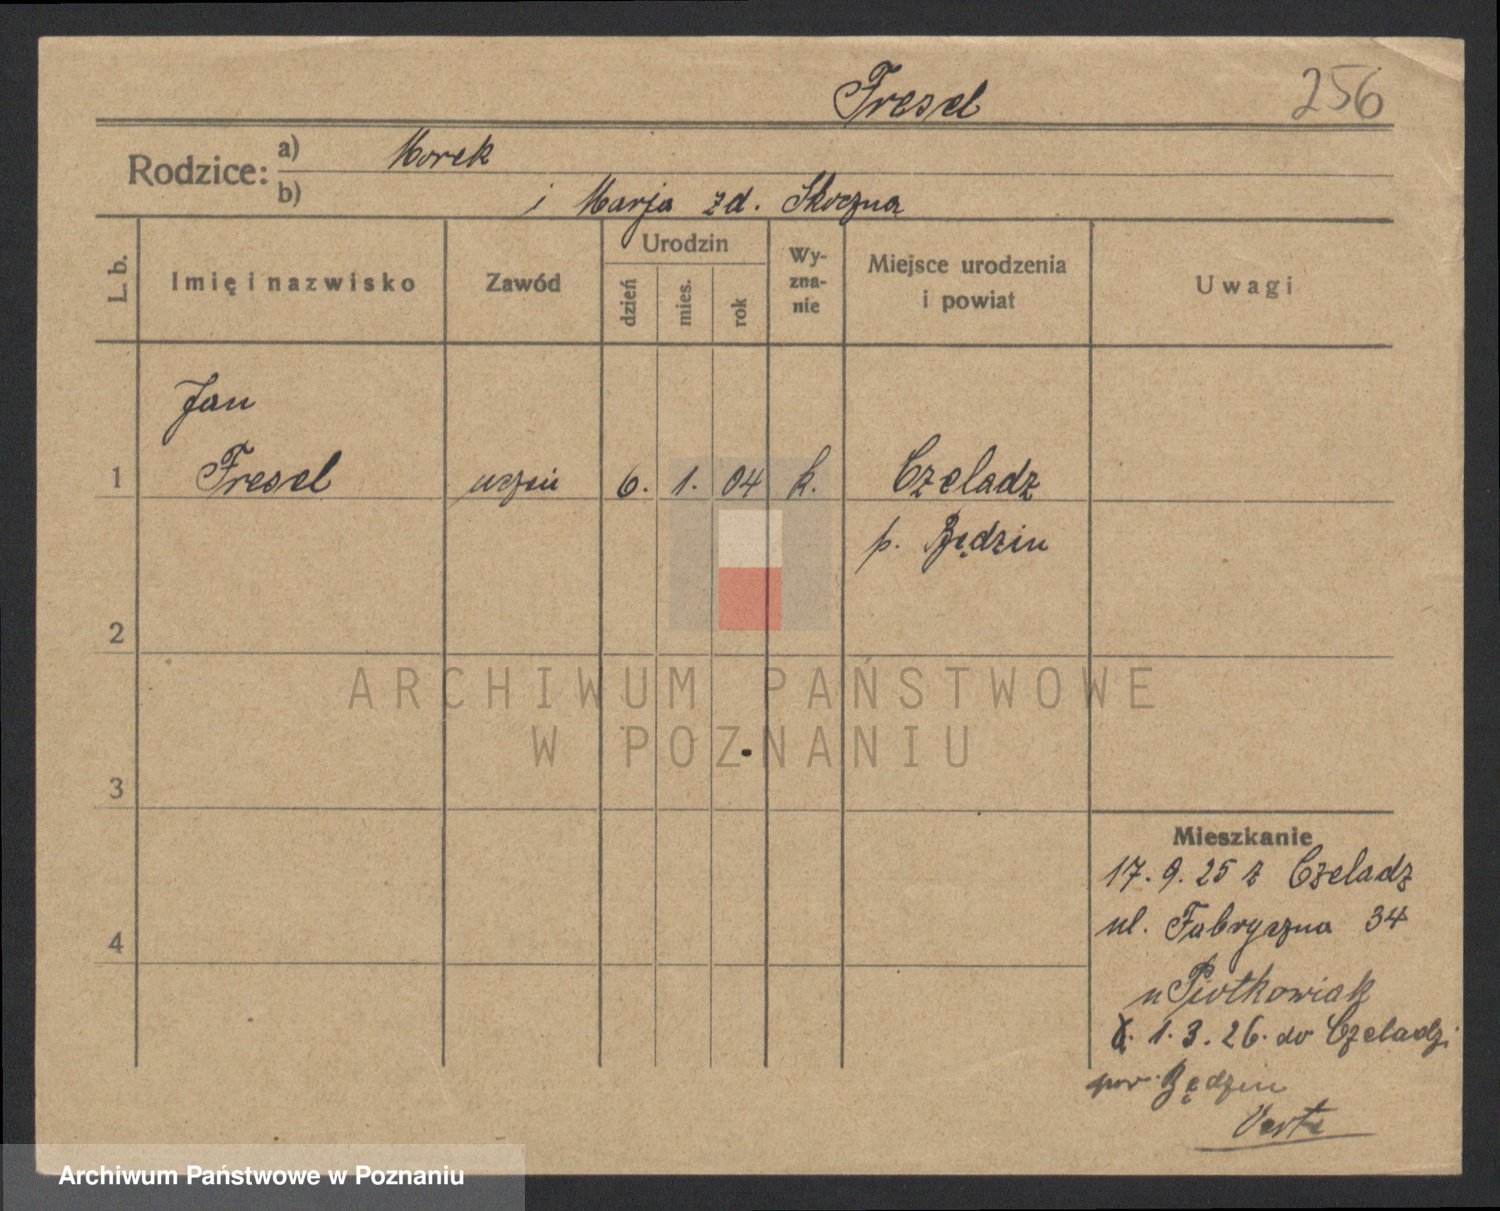 Fresel 256
Rodzice: a) Morek
b) i Marja zd. Skoczna
L. b. Imię i nazwisko Zawód Urodzin dzień mies. rok Wyznanie Miejsce urodzenia i powiat Uwagi
Jan
1 Fresel uczeń 6. 1. 04 k. Czeladz
p. Będzin
2
ARCHIWUM PAŃSTWOWE
W POZNANIU
3
Mieszkanie
17. 9. 25 z Czeladz
ul. Fabryczna 34
4
u Piotkowiak
1. 3. 26. do Czeladzi
pow. Będzin
Verte
Archiwum Państwowe w Poznaniu